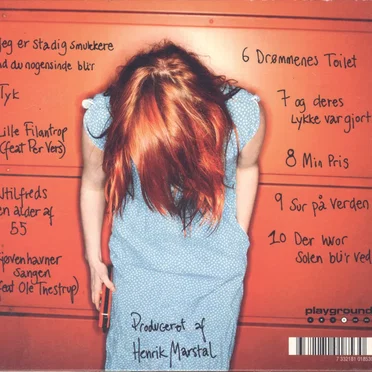 Jeg er stadig smukkere
nd du nogensinde bli'r
Tyk
Lille Filantrop
(feat Per Vers)
Utilfreds
en alder af
55
Kjøvenhavner
sangen
(feat Ole Thestrup)
6 Drømmenes Toilet
7 og deres
Lykke var gjort
8 Min Pris
9 Sur på Verden
10 Der hvor
Solen bli'r ved
Produceret af
Henrik Marstal
playground